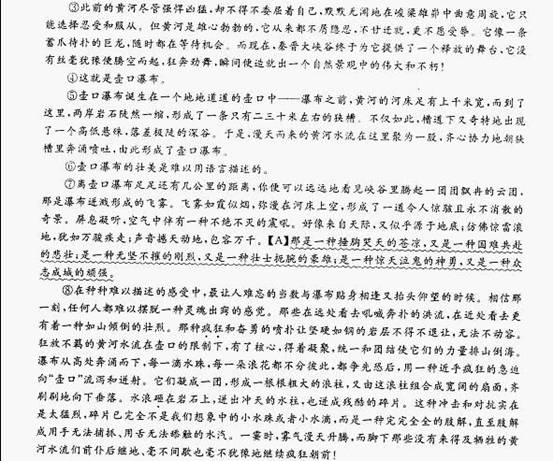 ③此前的黄河尽管强悍凶猛,却不得不委屈着自己,默默无闻地在峻梁雄峁中曲意周旋,它只
能选择忍受和服从。但黄河是雄心勃勃的,它从来都不肯隐忍,不甘迁就,更不愿受辱。它像一条
蓄爪待扑的巨龙,随时都在等待机会。而现在,秦晋大峡谷终于为它提供了一个释放的舞台,它没
有丝毫犹豫便腾空而起,狂奔劲舞,瞬间便造就出一个自然景观中的伟大和不朽!
④这就是壶口瀑布。
⑤壶口瀑布诞生在一个地地道道的壶口中——瀑布之前,黄河的河床足有上千米宽,而到了
这里,两岸岩石陡然一缩,形成了一条只有二三十米左右的狭槽。不仅如此,槽道下又奇特地出现
了一个高低悬殊,落差极陡的深谷。于是,漫天而来的黄河水流在这里聚为一股,齐心协力地朝狭
槽里奔涌喷吐,由此形成了壶口瀑布。
⑥壶口瀑布的壮美是难以用语言描述的。
⑦离壶口瀑布足足还有几公里的距离,你便可以远远地看见峡谷里腾起一团团飘冉的云团,
那是瀑布迸溅形成的飞雾。飞雾如霞似烟,弥漫在河床上空,形成了一道令人惊骇且永不消散的
奇景。屏息凝听,空气中伴有一种不绝不灭的震吼。好像来自天际,又似乎源于地底;仿佛惊雷滚
地,犹如万骏疾走;声音撼天动地,包容万千。【A】那是一种捶胸哭天的苍凉,又是一种国难共赴
的悲壮;是一种无坚不摧的刚烈,又是一种壮士扼腕的豪雄;是一种惊天泣鬼的神勇,又是一种众
志成城的顽强。
⑧在种种难以描述的感受中,最让人难忘的当数与瀑布贴身相逢又抬头仰望的时候。相信那
一刻,任何人都难以摆脱一种灵魂出窍的感觉。那些在远处看去吼喊奔扑的洪流,在近处看去更
有着一种如山倾倒的壮烈。那种疯狂和奋勇的喷扑让坚硬如钢的岩层不得不退让,无法不动容。
狂放不羁的黄河水流在壶口的限制下,有了核心,得着凝聚,统一和团结使它们的力量排山倒海。
瀑布从高处奔涌而下,每一滴水珠,每一朵浪花都不分彼此,都争先恐后,用一种近乎疯狂的急迫
向“壶口”流泻和迸射。它们凝成一团,形成一根根粗大的浪柱,又由这浪柱组合成宽阔的扇面,齐
刷刷地向下垂落。水浪砸在岩石上,迸出冲天的水柱,也迸成残酷的碎片。这种冲击和对抗实在
是太猛烈,碎片已完全不是我们想象中的小水珠或者小水滴,而是一种完完全全的肢解,直至肢解
成用手无法捕抓、用舌无法舔触的水汽。一霎时,雾气漫天升腾,而脚下那些没有来得及牺牲的黄
河水流们前仆后继地、毫不间歇也毫不犹豫地继续疯狂朝前!